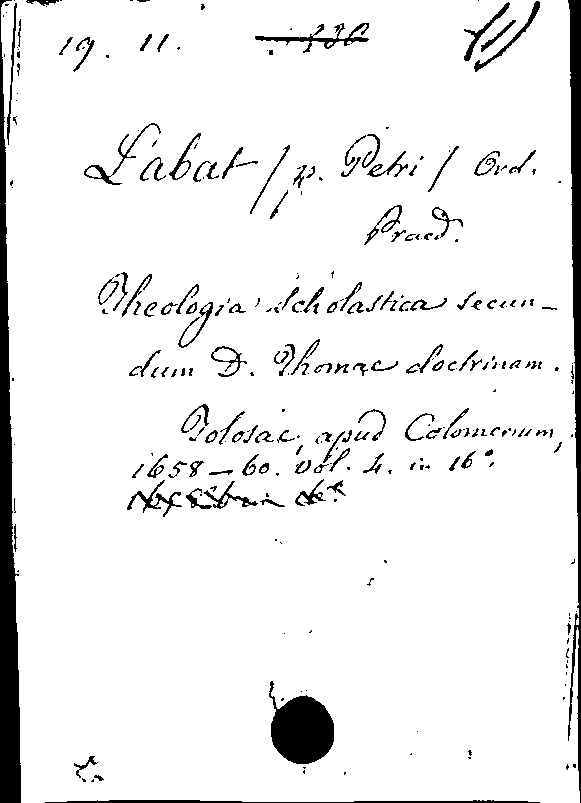 19. 11.
Labat / p. Petri / Ord.
Praed.
Theologia scholastica secun-
dum D. Thomae doctrinam.
Tolosae, apud Colomerium,
1658-60. vol. 4. in 16°.